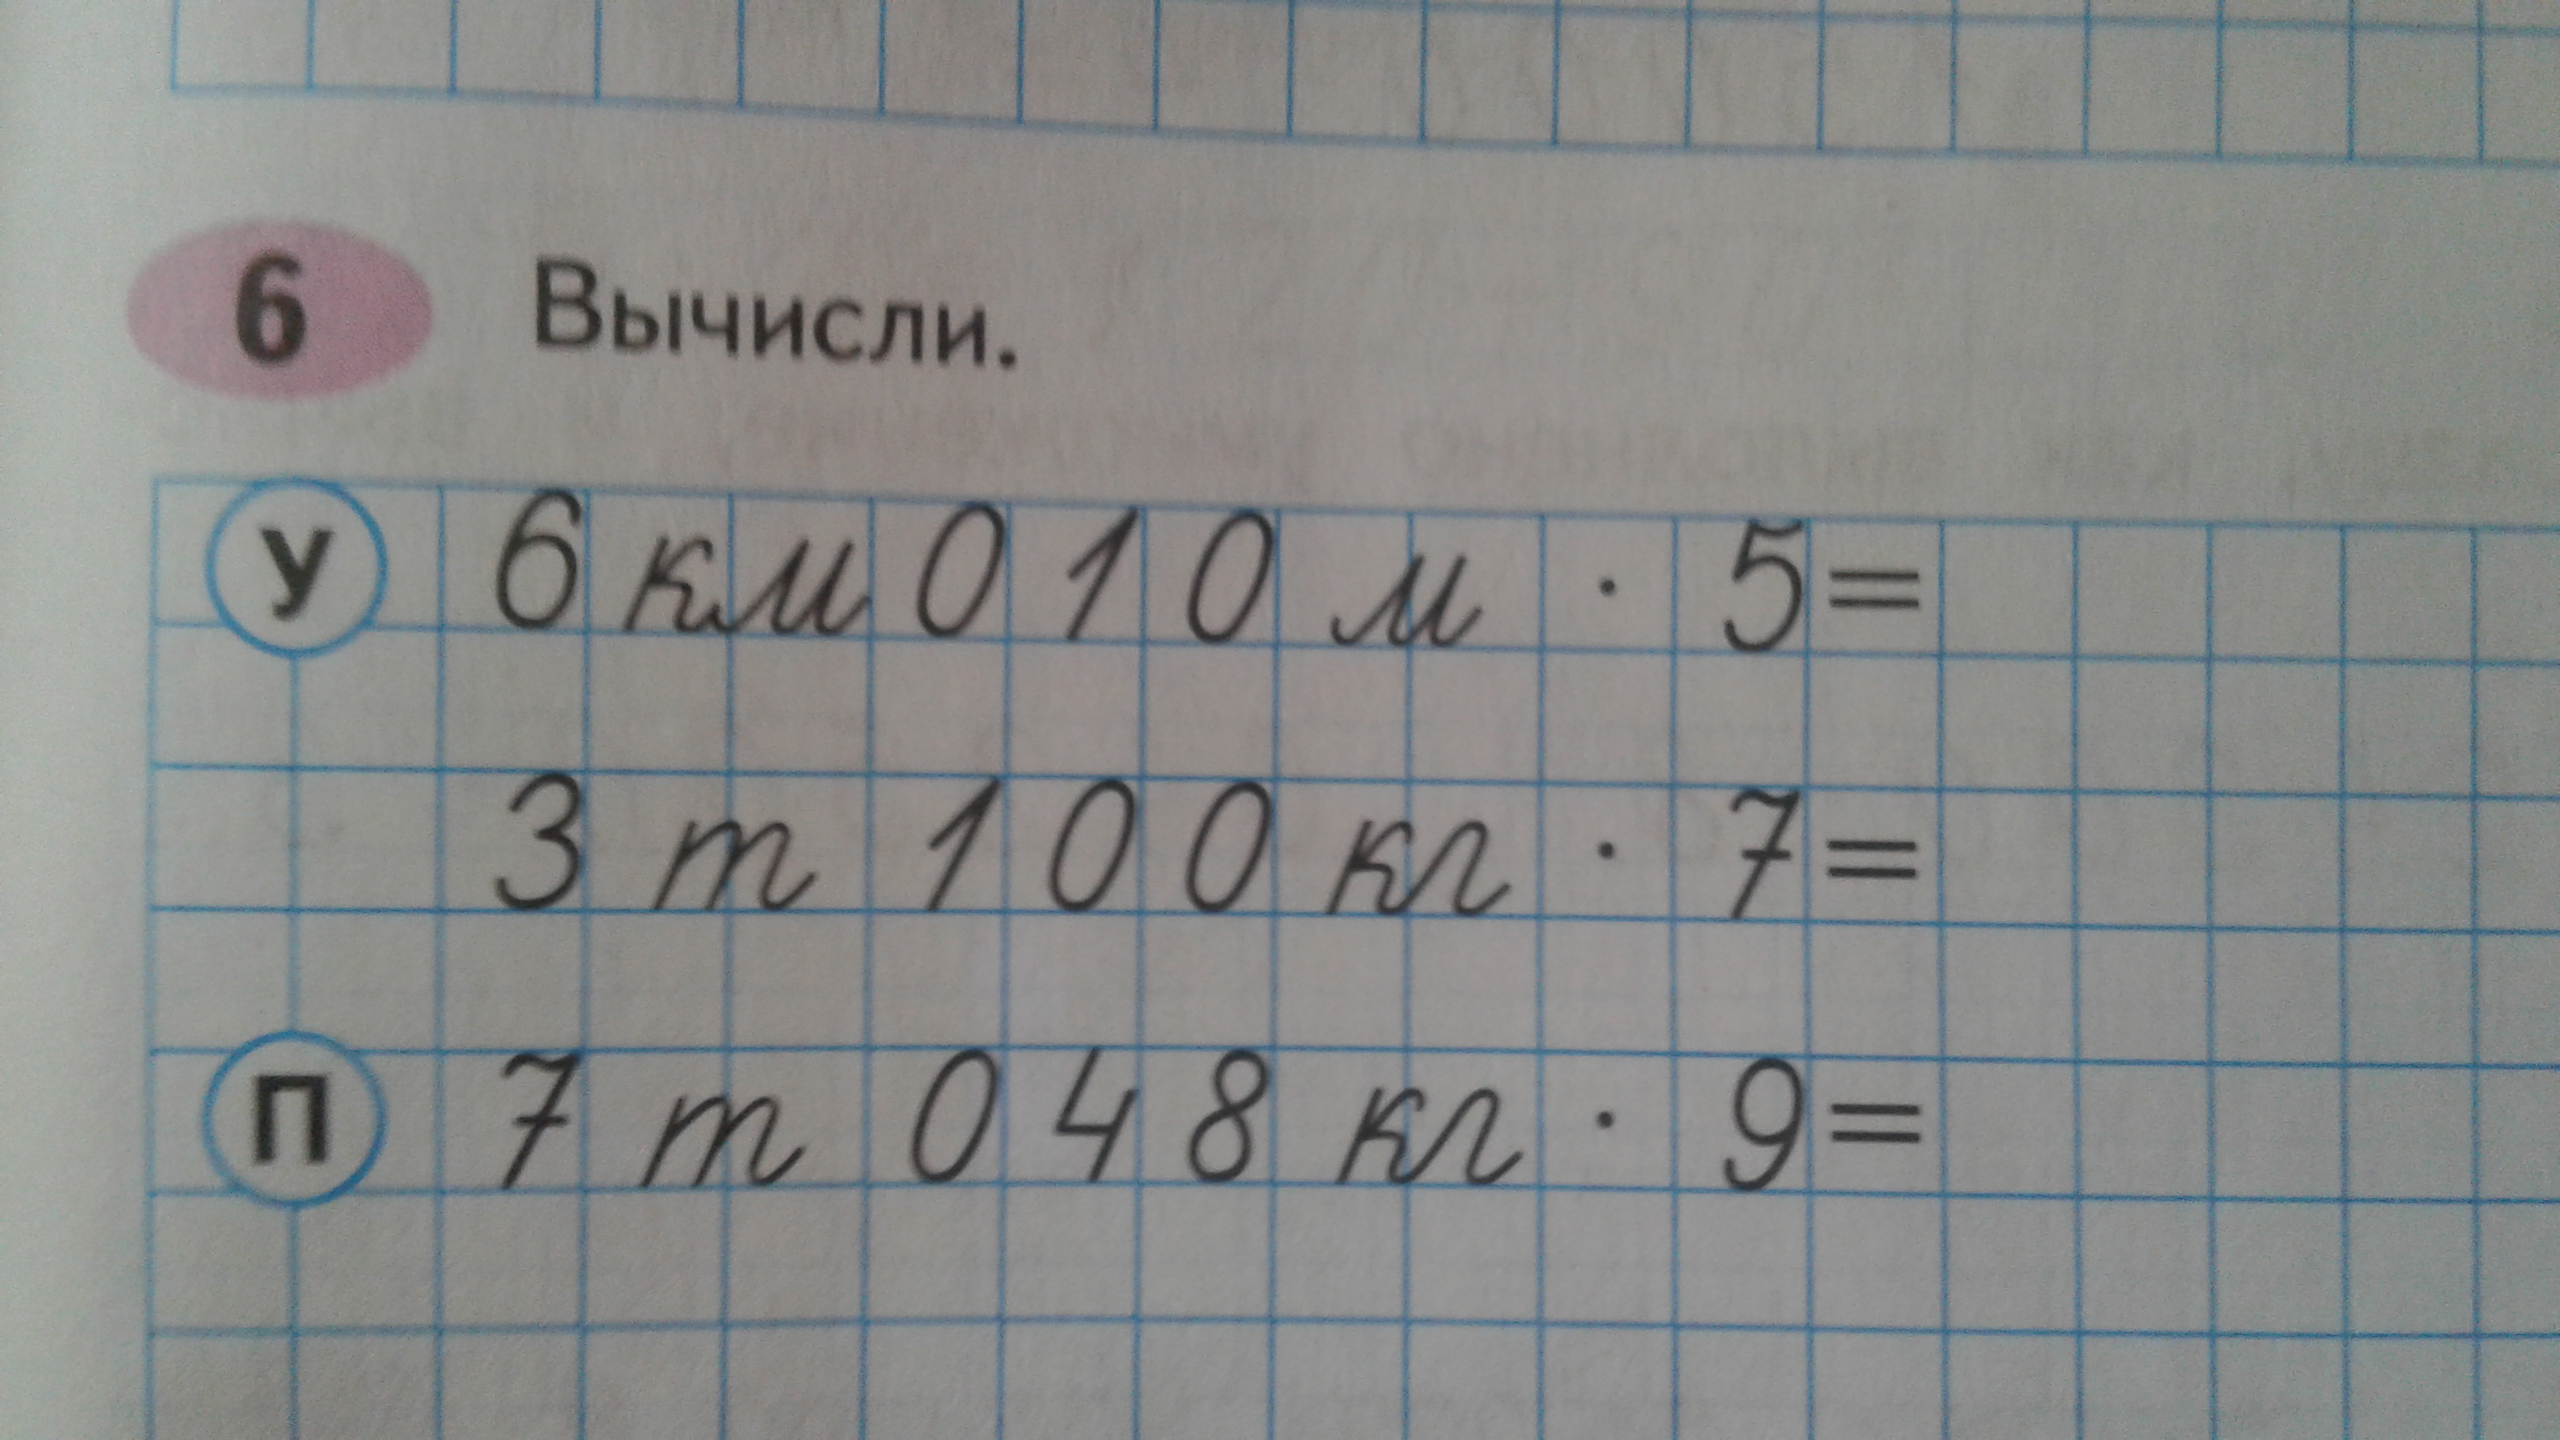 6 Вычисли.
У 6 км 010 м · 5=
3 т 100 кг · 7=
П 7 т 048 кг · 9=